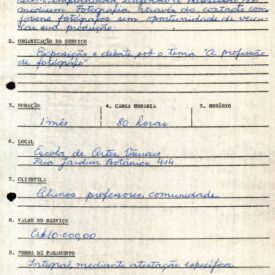 medium Fotografia através do contacto com
jovens fotógrafos sem oportunidade de veicu-
lar sua produção.
2. ORGANIZAÇÃO DO SERVIÇO
Exposição e debate sob o tema "A profissão
de fotógrafo".
3. DURAÇÃO 4. CARGA HORÁRIA 5. HORÁRIO
1 mês 80 horas
6. LOCAL
Escola de Artes Visuais
Rua Jardim Botânico 414
7. CLIENTELA
Alunos, professores, comunidade.
8. VALOR DO SERVIÇO
Cr$10.000,00
9. FORMA DE PAGAMENTO
Integral mediante atestação específica